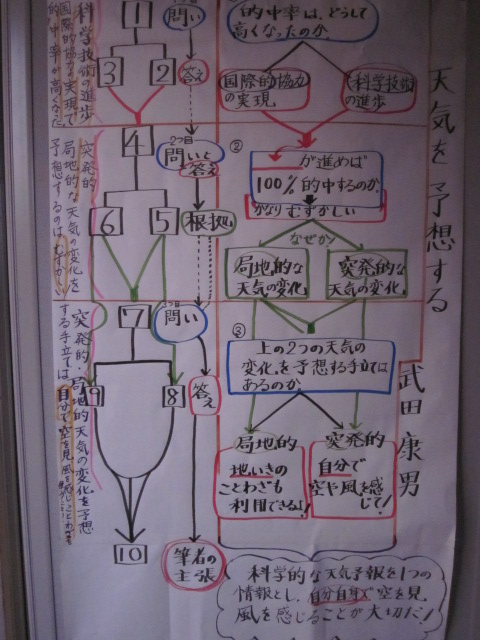 天気を予想する
武田康男
①
的中率は、どうして
高くなったのか。
国際的協力
の実現
科学技術
の進歩
②
が進めば
100%的中するのか。
かなりむずかしい
なぜか?
局地的な
天気の変化。
突発的な
天気の変化。
③
上の2つの天気の
変化を予想する手立ては
あるのか。
局地的
地いきの
ことわざも
利用できるよ!
突発的
自分で
空や風を感じて!
科学的な天気予報を1つの
情報とし、自分自身で空を見、
風を感じることが大切だ!
問い
答え
2つ目
問いと
答え
根拠
3つ目
問い
答え
筆者の
主張
1
3
2
4
6
5
7
9
8
10
科学技術の進歩
国際的協力の実現で
的中率が高くなった。
突発的
局地的な天気の変化を
予想するのはむずかしい
突発的・局地的天気の変化を予想
する手立ては、自分で空を見、風を感じことわざを